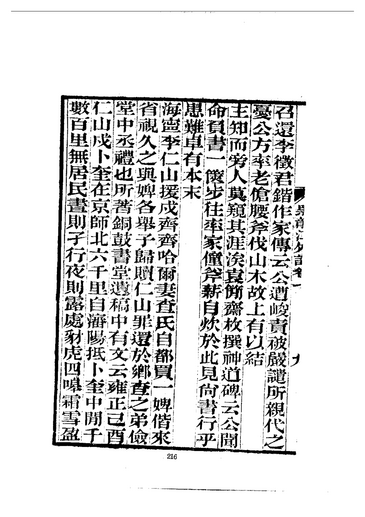 召還李徵君鍇作家傳云公遭峻責被嚴譴所親代之
憂公方率老傖腰斧伐山木故上有以結
主知而旁人莫窺其涯涘袁簡齋枚撰神道碑云公聞
命負書一篋步往率家僮斧薪自炊於此見尚書行乎
患難卓有本末
海寧李仁山援戍齊齊哈爾妻查氏自都買一婢偕來
省視久之與婢各舉子歸贖仁山罪還於鄉查之弟儉
堂中丞禮也所著銅鼓書堂遺稿中有文云雍正己酉
仁山戍卜奎在京師北六千里自瀋陽抵卜奎中閒千
數百里無居民晝則孑行夜則露處豺虎四嗥霜雪盈
卷一
九
216